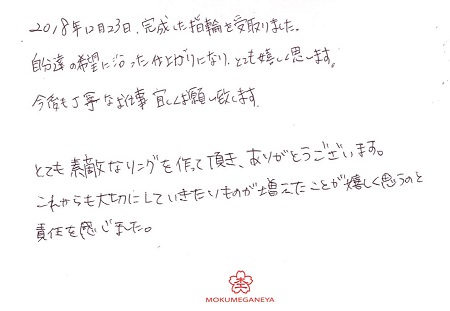 2018年12月23日、完成した指輪を受取りました。
自分達の希望に沿った仕上がりになり、とても嬉しく思います。
今後も丁寧なお仕事宜しくお願い致します。
とても素敵なリングを作って頂き、ありがとうございます。
これからも大切にしていきたいものが増えたことが嬉しく思うのと
責任を感じました。
MOKUMEGANEYA